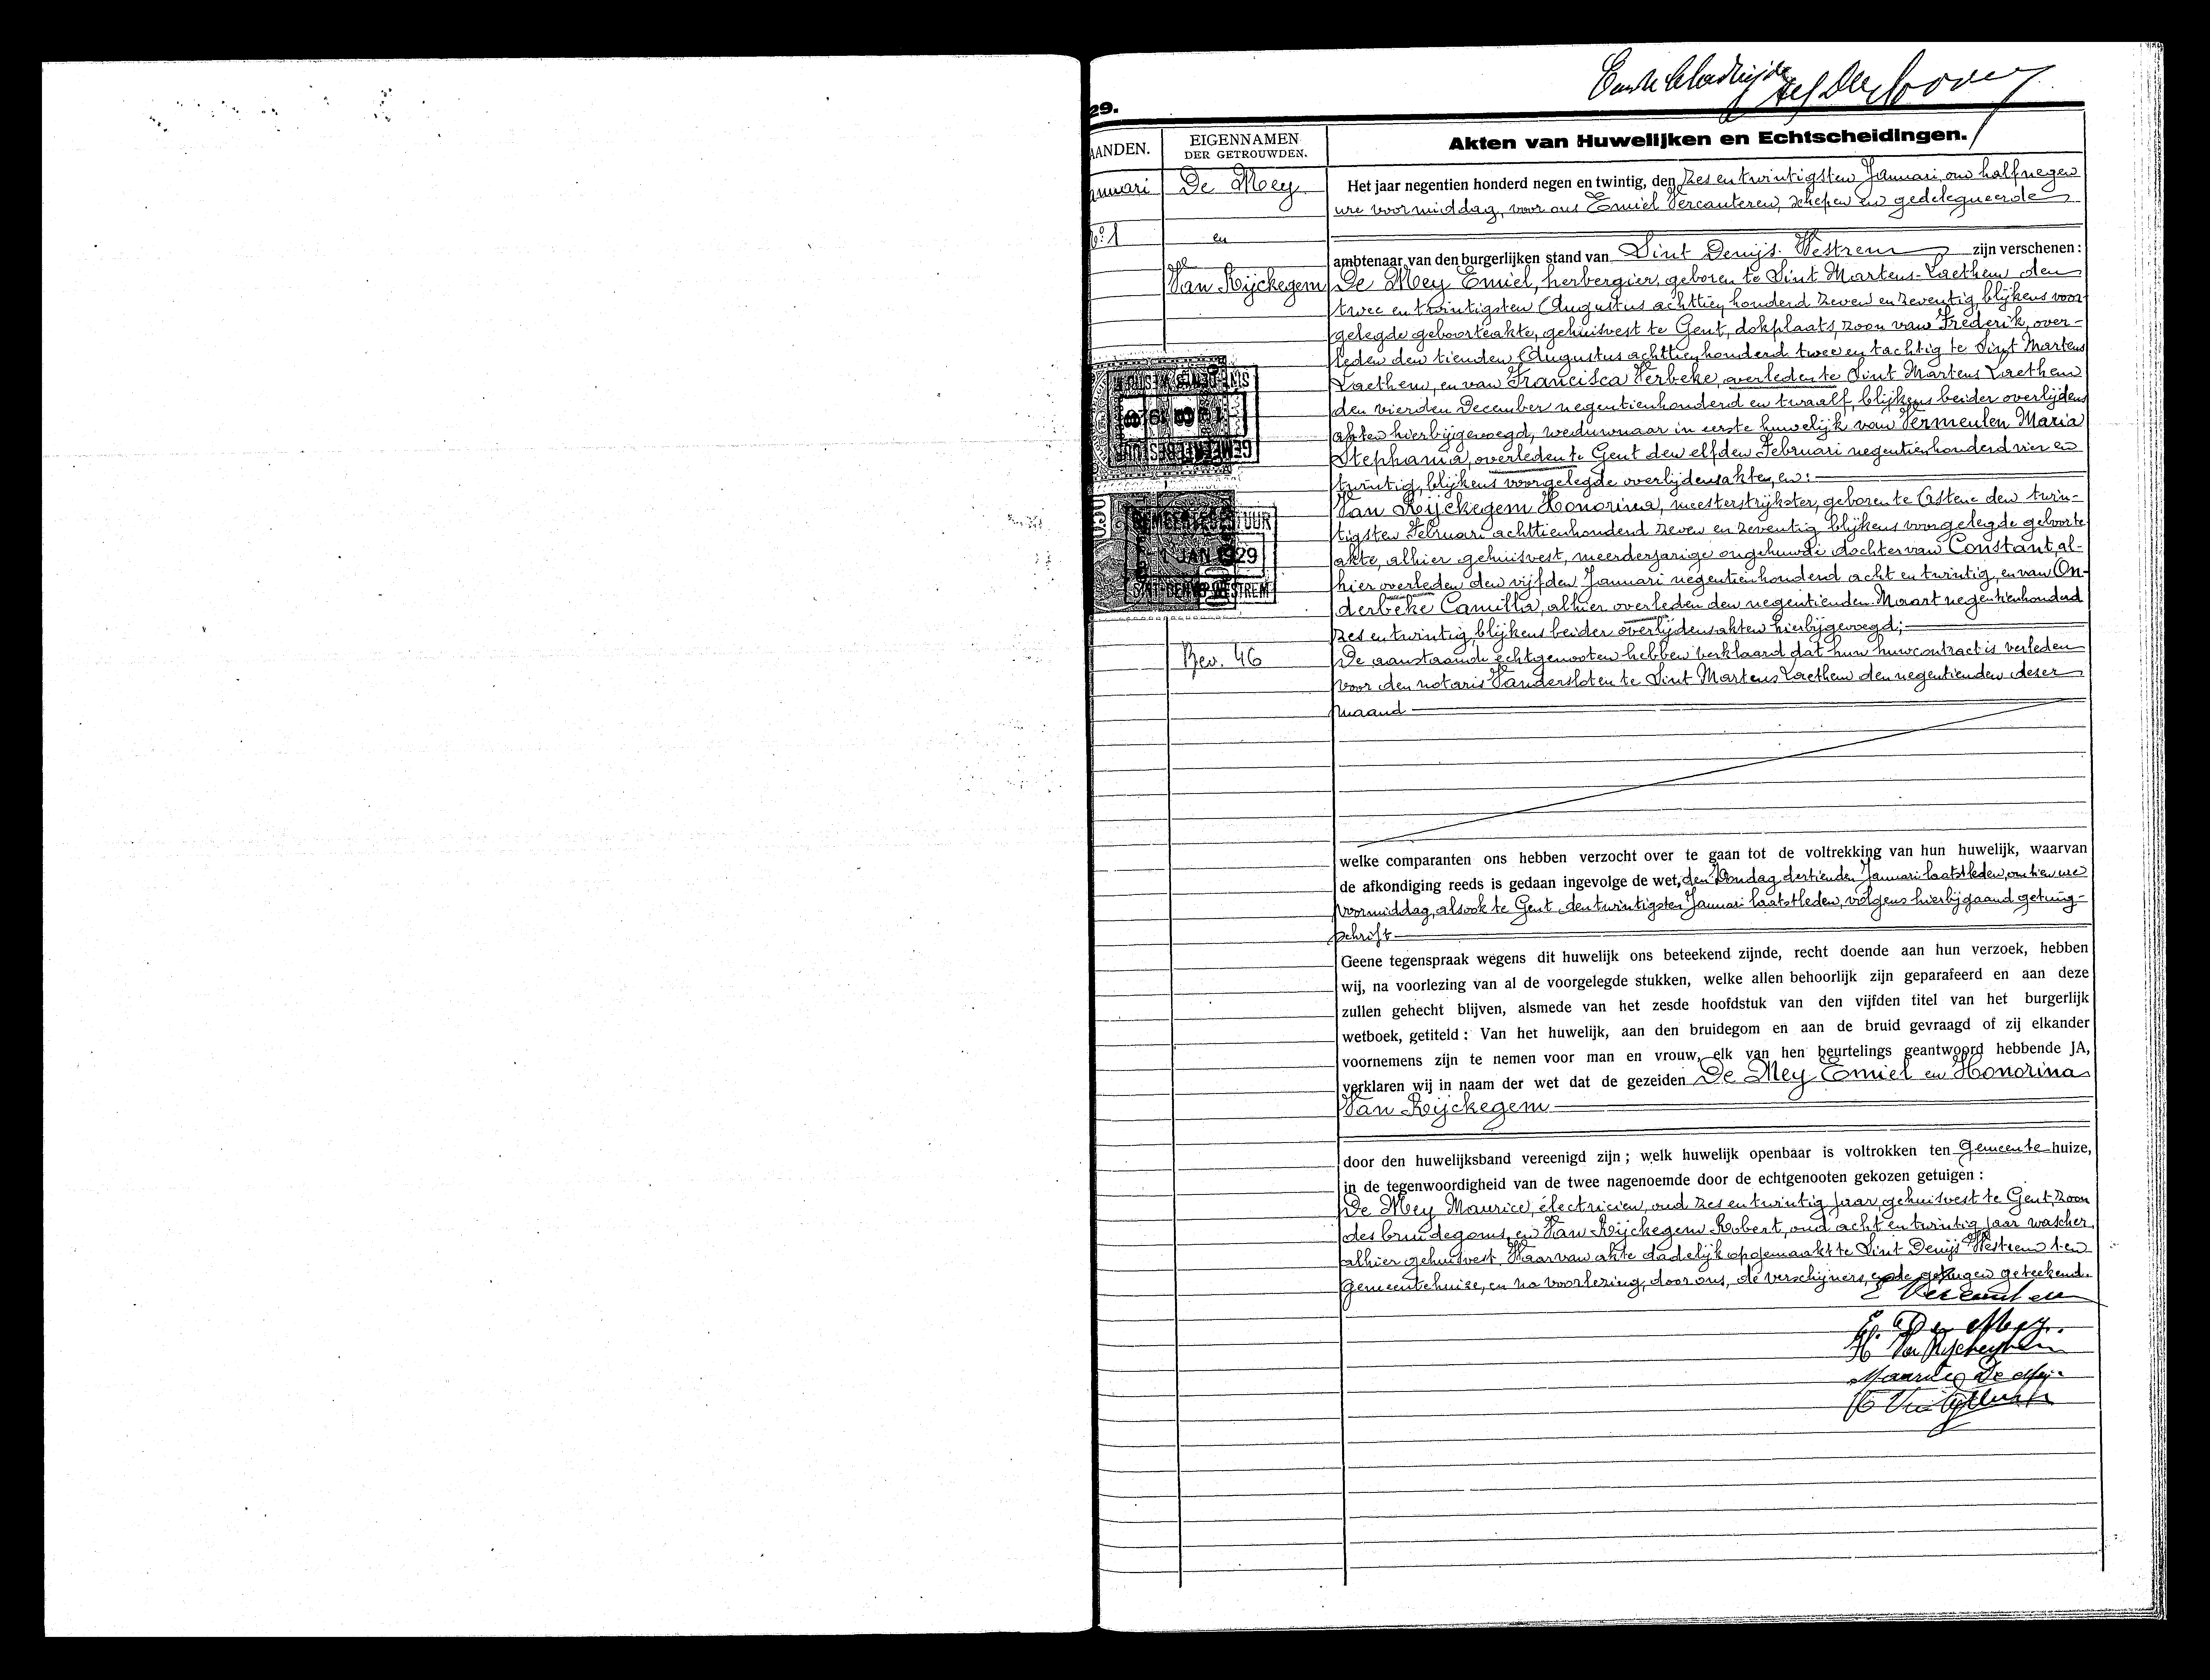 Eerste bladzijde
29.
AANDEN.
EIGENNAMEN
DER GETROUWDEN.
Akten van Huwelijken en Echtscheidingen.
anuari
No 1
De Mey
en
Van Rijckegem
GEMEENTEBESTUUR
SINT-DENYS-WESTREM
GEMEENTEBESTUUR
- 1 JAN 1929
SINT-DENYS-WESTREM
Bev. 46
Het jaar negentien honderd negen en twintig, den zes en twintigsten Januari, om half negen
ure voormiddag, voor ons Emiel Vercauteren, schepen en gedelegueerde
ambtenaar van den burgerlijken stand van Sint Denijs-Westrem zijn verschenen:
De Mey Emiel, herbergier, geboren te Sint Martens-Laethem den
twee en twintigsten Augustus achttien honderd zeven en zeventig, blijkens voor-
gelegde geboorteakte, gehuisvest te Gent, dokplaats, zoon van Frederik, over-
leden den tienden Augustus achttienhonderd twee en tachtig te Sint Martens
Laethem, en van Francisca Verbeke, overleden te Sint Martens Laethem
den vierden December negentienhonderd en twaalf, blijkens beider overlijdens
akten hierbijgevoegd, weduwnaar in eerste huwelijk van Vermeulen Maria
Stephania, overleden te Gent den elfden Februari negentienhonderd vier en
twintig, blijkens voorgelegde overlijdensakten, en:
Van Rijckegem Honorina, meesterstrijkster, geboren te Astene den twin-
tigsten Februari achttienhonderd zeven en zeventig blijkens voorgelegde geboorte
akte, alhier gehuisvest, meerderjarige ongehuwde dochter van Constant, al-
hier overleden den vijfden Januari negentienhonderd acht en twintig, en van On-
derbeke Camilla, alhier overleden den negentienden Maart negentienhonderd
zes en twintig blijkens beider overlijdensakten hierbijgevoegd;
De aanstaande echtgenooten hebben verklaard dat hun huwcontract is verleden
voor den notaris Vandersloten te Sint Martens Laethem den negentienden dezer
maand
welke comparanten ons hebben verzocht over te gaan tot de voltrekking van hun huwelijk, waarvan
de afkondiging reeds is gedaan ingevolge de wet, den Zondag dertienden Januari laatstleden, om tien ure
voormiddag, alsook te Gent den twintigsten Januari laatstleden, volgens hierbijgaand getuig-
schrift
Geene tegenspraak wegens dit huwelijk ons beteekend zijnde, recht doende aan hun verzoek, hebben
wij, na voorlezing van al de voorgelegde stukken, welke allen behoorlijk zijn geparafeerd en aan deze
zullen gehecht blijven, alsmede van het zesde hoofdstuk van den vijfden titel van het burgerlijk
wetboek, getiteld: Van het huwelijk, aan den bruidegom en aan de bruid gevraagd of zij elkander
voornemens zijn te nemen voor man en vrouw, elk van hen beurtelings geantwoord hebbende JA,
verklaren wij in naam der wet dat de gezeiden De Mey Emiel en Honorina
Van Rijckegem
door den huwelijksband vereenigd zijn; welk huwelijk openbaar is voltrokken ten Gemeentehuize,
in de tegenwoordigheid van de twee nagenoemde door de echtgenooten gekozen getuigen:
De Mey Maurice, électricien, oud zes en twintig jaar, gehuisvest te Gent, zoon
des bruidegoms, en Van Rijckegem Robert, oud acht en twintig jaar wascher,
alhier gehuisvest. Waarvan akte dadelijk opgemaakt te Sint Denijs Westrem ten
Gemeentehuize, en na voorlezing, door ons, de verschijners, en de getuigen geteekend.
E Vercauteren
E. De Mey.
H Van Rijckeghem
Maurice De Mey